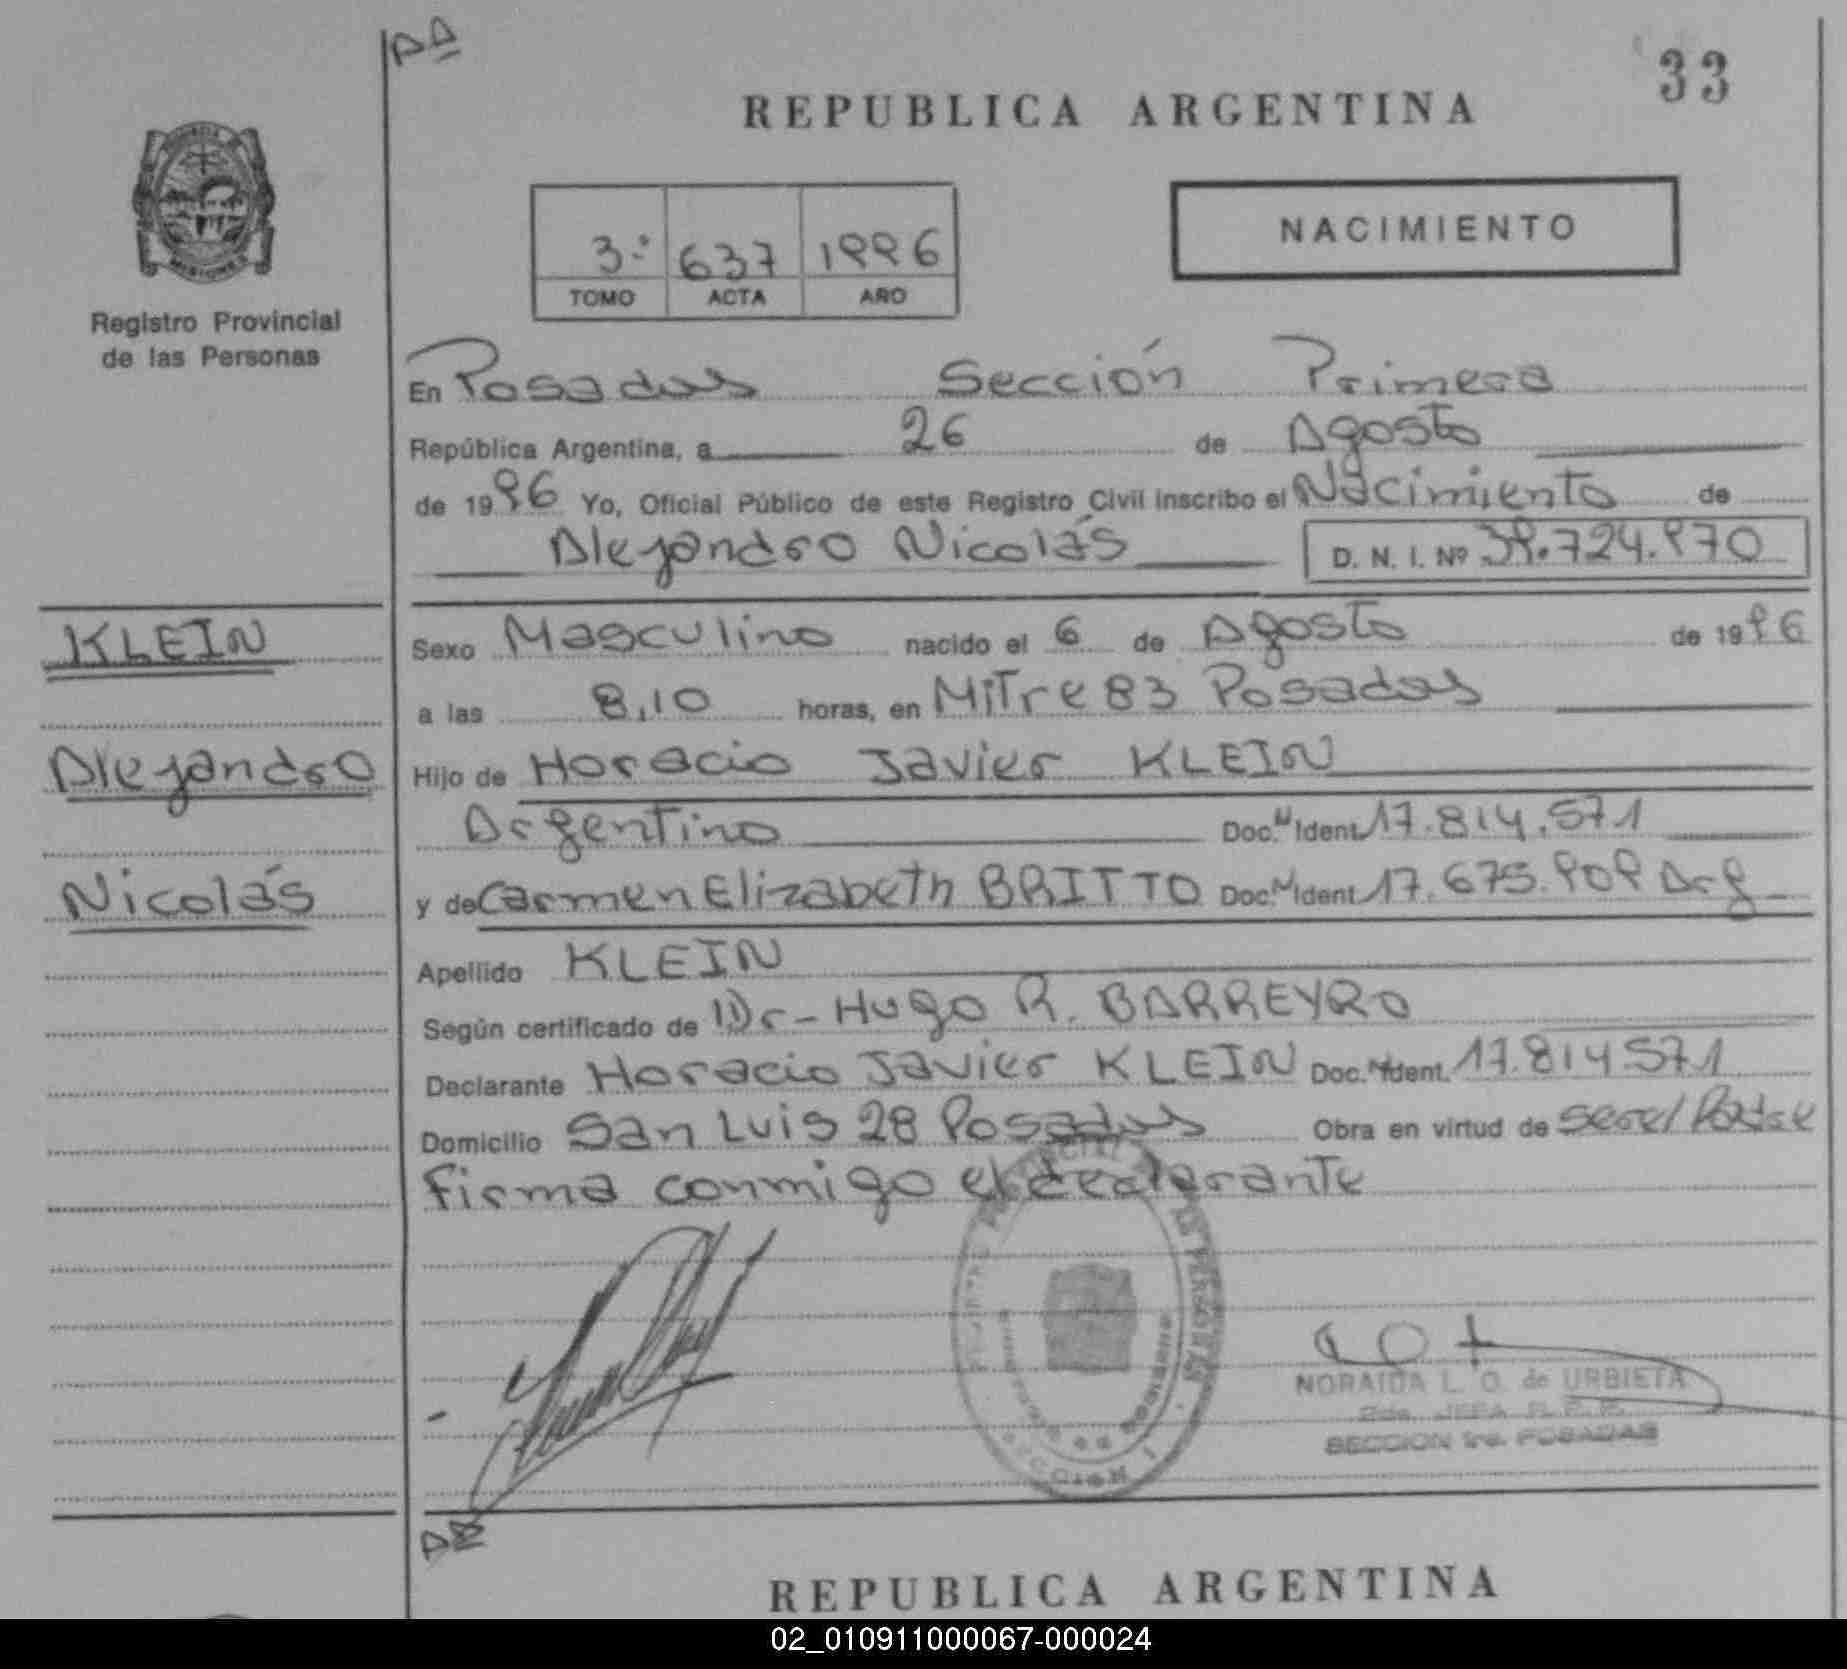 33
REPUBLICA ARGENTINA
3º 637 1996
TOMO ACTA AÑO
NACIMIENTO
MISIONES
Registro Provincial
de las Personas
En Posadas Sección Primera
República Argentina, a 26 de Agosto
de 1996 Yo, Oficial Público de este Registro Civil inscribo el Nacimiento de
Alejandro Nicolás D. N. I. Nº 39.724.970
KLEIN
Alejandro
Nicolás
Sexo Masculino nacido el 6 de Agosto de 1996
a las 8,10 horas, en Mitre 83 Posadas
Hijo de Horacio Javier KLEIN
Argentino Doc. Ident 17.814.571
y de Carmen Elizabeth BRITTO Doc. Ident 17.675.909 Arg
Apellido KLEIN
Según certificado de Dr- Hugo R. BARREYRO
Declarante Horacio Javier KLEIN Doc. Ident. 17.814.571
Domicilio San Luis 28 Posadas Obra en virtud de ser el Padre
firma conmigo el declarante
NORAIDA L. O. de URBIETA
2da. JEFA R. P. P.
SECCION 1ra. POSADAS
REPUBLICA ARGENTINA
02_010911000067-000024